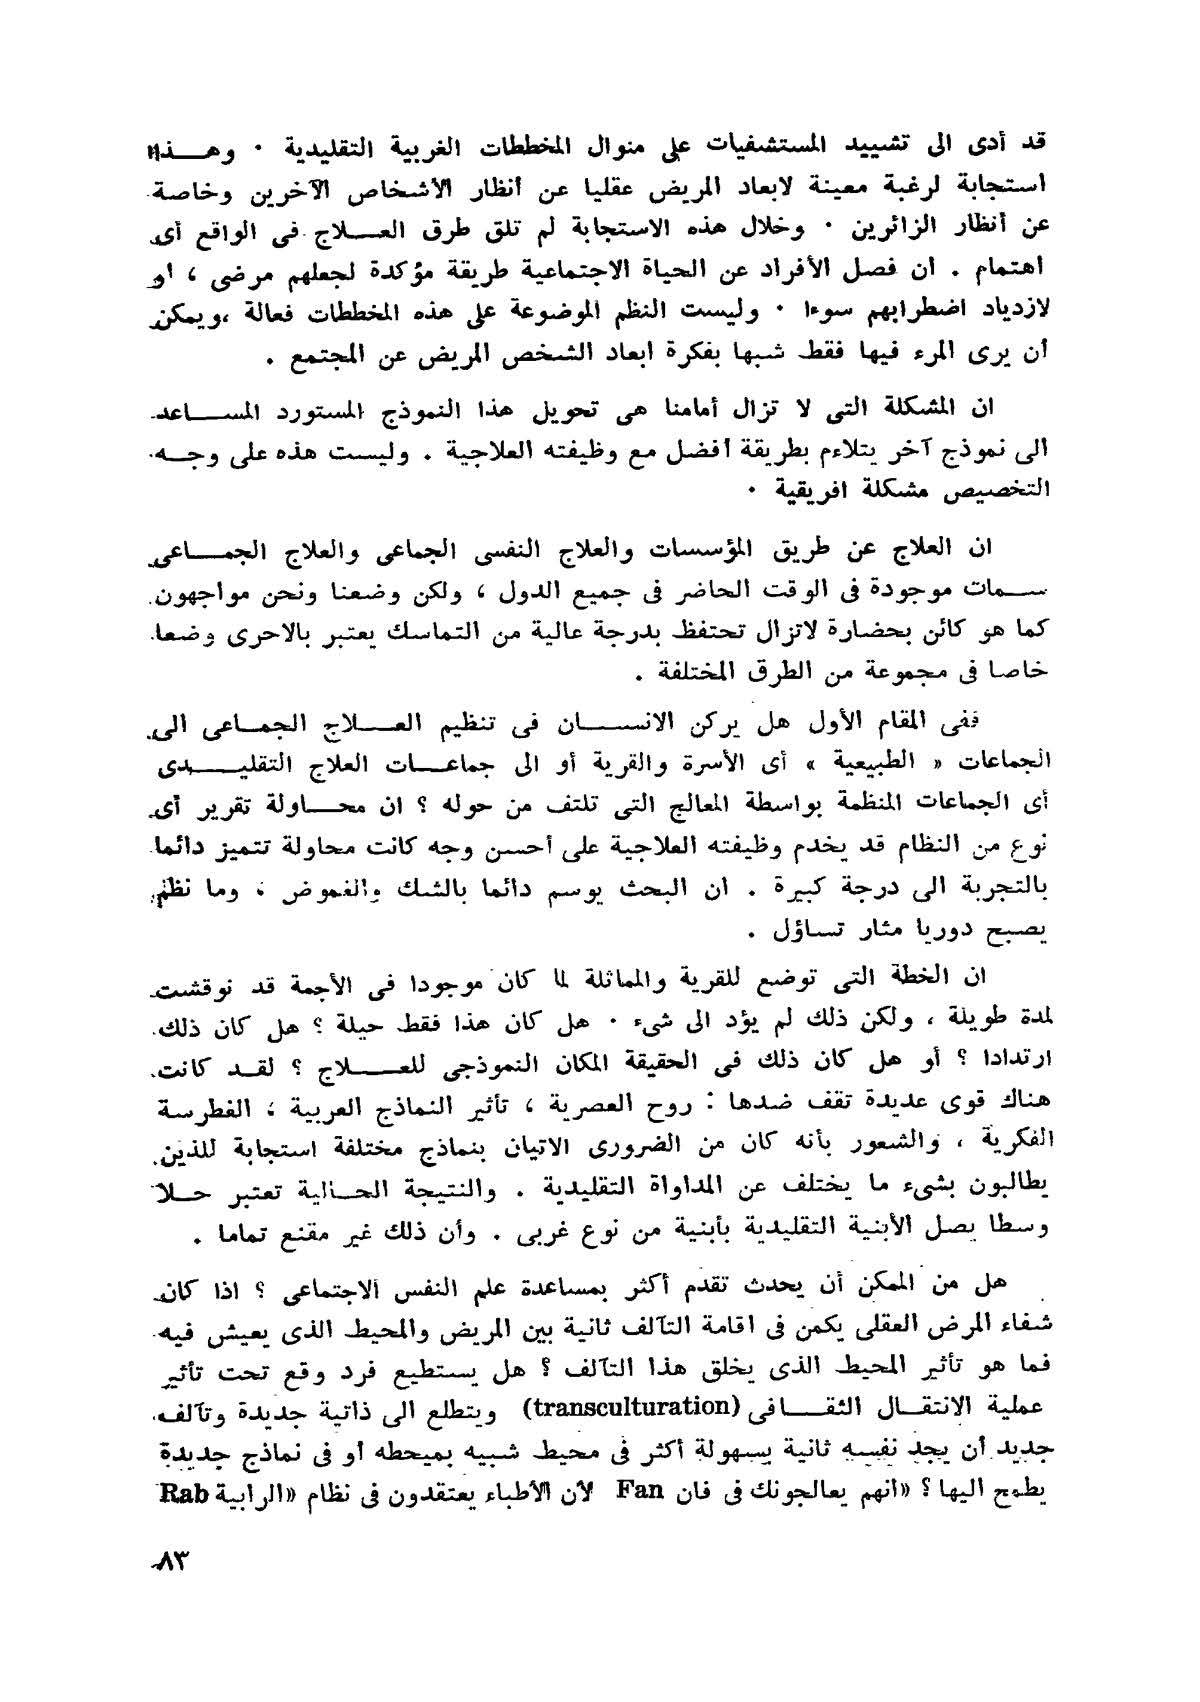 قد أدى الى تشييد المستشفيات على منوال المخططات الغربية التقليدية . وهذا
استجابة لرغبة معينة لابعاد المريض عقليا عن أنظار الأشخاص الآخرين وخاصة
عن أنظار الزائرين . وخلال هذه الاستجابة لم تلق طرق العلاج فى الواقع أى
اهتمام . ان فصل الأفراد عن الحياة الاجتماعية طريقة مؤكدة لجعلهم مرضى ، او
لازدياد اضطرابهم سوءا . وليست النظم الموضوعة على هذه المخططات فعالة ،ويمكن
أن يرى المرء فيها فقط شبها بفكرة ابعاد الشخص المريض عن المجتمع .
ان المشكلة التى لا تزال أمامنا هى تحويل هذا النموذج المستورد المساعد
الى نموذج آخر يتلاءم بطريقة أفضل مع وظيفته العلاجية . وليست هذه على وجه
التخصيص مشكلة افريقية .
ان العلاج عن طريق المؤسسات والعلاج النفسى الجماعى والعلاج الجماعى
سمات موجودة فى الوقت الحاضر فى جميع الدول ، ولكن وضعنا ونحن مواجهون
كما هو كائن بحضارة لاتزال تحتفظ بدرجة عالية من التماسك يعتبر بالاحرى وضعا
خاصا فى مجموعة من الطرق المختلفة .
ففى المقام الأول هل يركن الانسان فى تنظيم العلاج الجماعى الى
الجماعات « الطبيعية » أى الأسرة والقرية أو الى جماعات العلاج التقليدى
أى الجماعات المنظمة بواسطة المعالج التى تلتف من حوله ؟ ان محاولة تقرير أى
نوع من النظام قد يخدم وظيفته العلاجية على أحسن وجه كانت محاولة تتميز دائما
بالتجربة الى درجة كبيرة . ان البحث يوسم دائما بالشك والغموض ، وما نظم
يصبح دوريا مثار تساؤل .
ان الخطة التى توضع للقرية والمماثلة لما كان موجودا فى الأجمة قد نوقشت
لمدة طويلة ، ولكن ذلك لم يؤد الى شىء . هل كان هذا فقط حيلة ؟ هل كان ذلك
ارتدادا ؟ أو هل كان ذلك فى الحقيقة المكان النموذجى للعلاج ؟ لقد كانت
هناك قوى عديدة تقف ضدها : روح العصرية ، تأثير النماذج العربية ، الغطرسة
الفكرية ، والشعور بأنه كان من الضرورى الاتيان بنماذج مختلفة استجابة للذين
يطالبون بشىء ما يختلف عن المداواة التقليدية . والنتيجة الحالية تعتبر حلا
وسطا يصل الأبنية التقليدية بأبنية من نوع غربى . وأن ذلك غير مقنع تماما .
هل من الممكن أن يحدث تقدم أكثر بمساعدة علم النفس الاجتماعى ؟ اذا كان
شفاء المرض العقلى يكمن فى اقامة التآلف ثانية بين المريض والمحيط الذى يعيش فيه
فما هو تأثير المحيط الذى يخلق هذا التآلف ؟ هل يستطيع فرد وقع تحت تأثير
عملية الانتقال الثقافى (transculturation) ويتطلع الى ذاتية جديدة وتآلف
جديد أن يجد نفسه ثانية بسهولة أكثر فى محيط شبيه بميحطه أو فى نماذج جديدة
يطمح اليها ؟ «انهم يعالجونك فى فان Fan لأن الأطباء يعتقدون فى نظام «الرابية Rab
٨٣